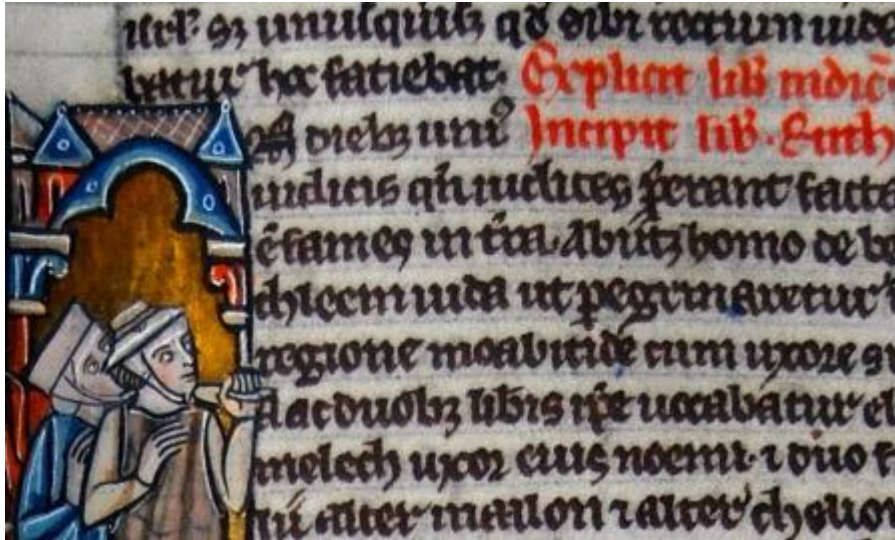 isrl' sz unusquisqz qd sibi rectum uide
batur hoc fatiebat. Explicit lib iudic
dieb unis Incipit lib. Ruth
iudicis qn iudices perant facta
e fames in tra. Abiitqz homo de be
thleem iuda ut peregrinaretur
regione moabitide cum uxore su
a ac duobz libis ipe uocabatur e
melech uxor eius noemi. 7 duo f
lii alter maalon 7 alter chelion